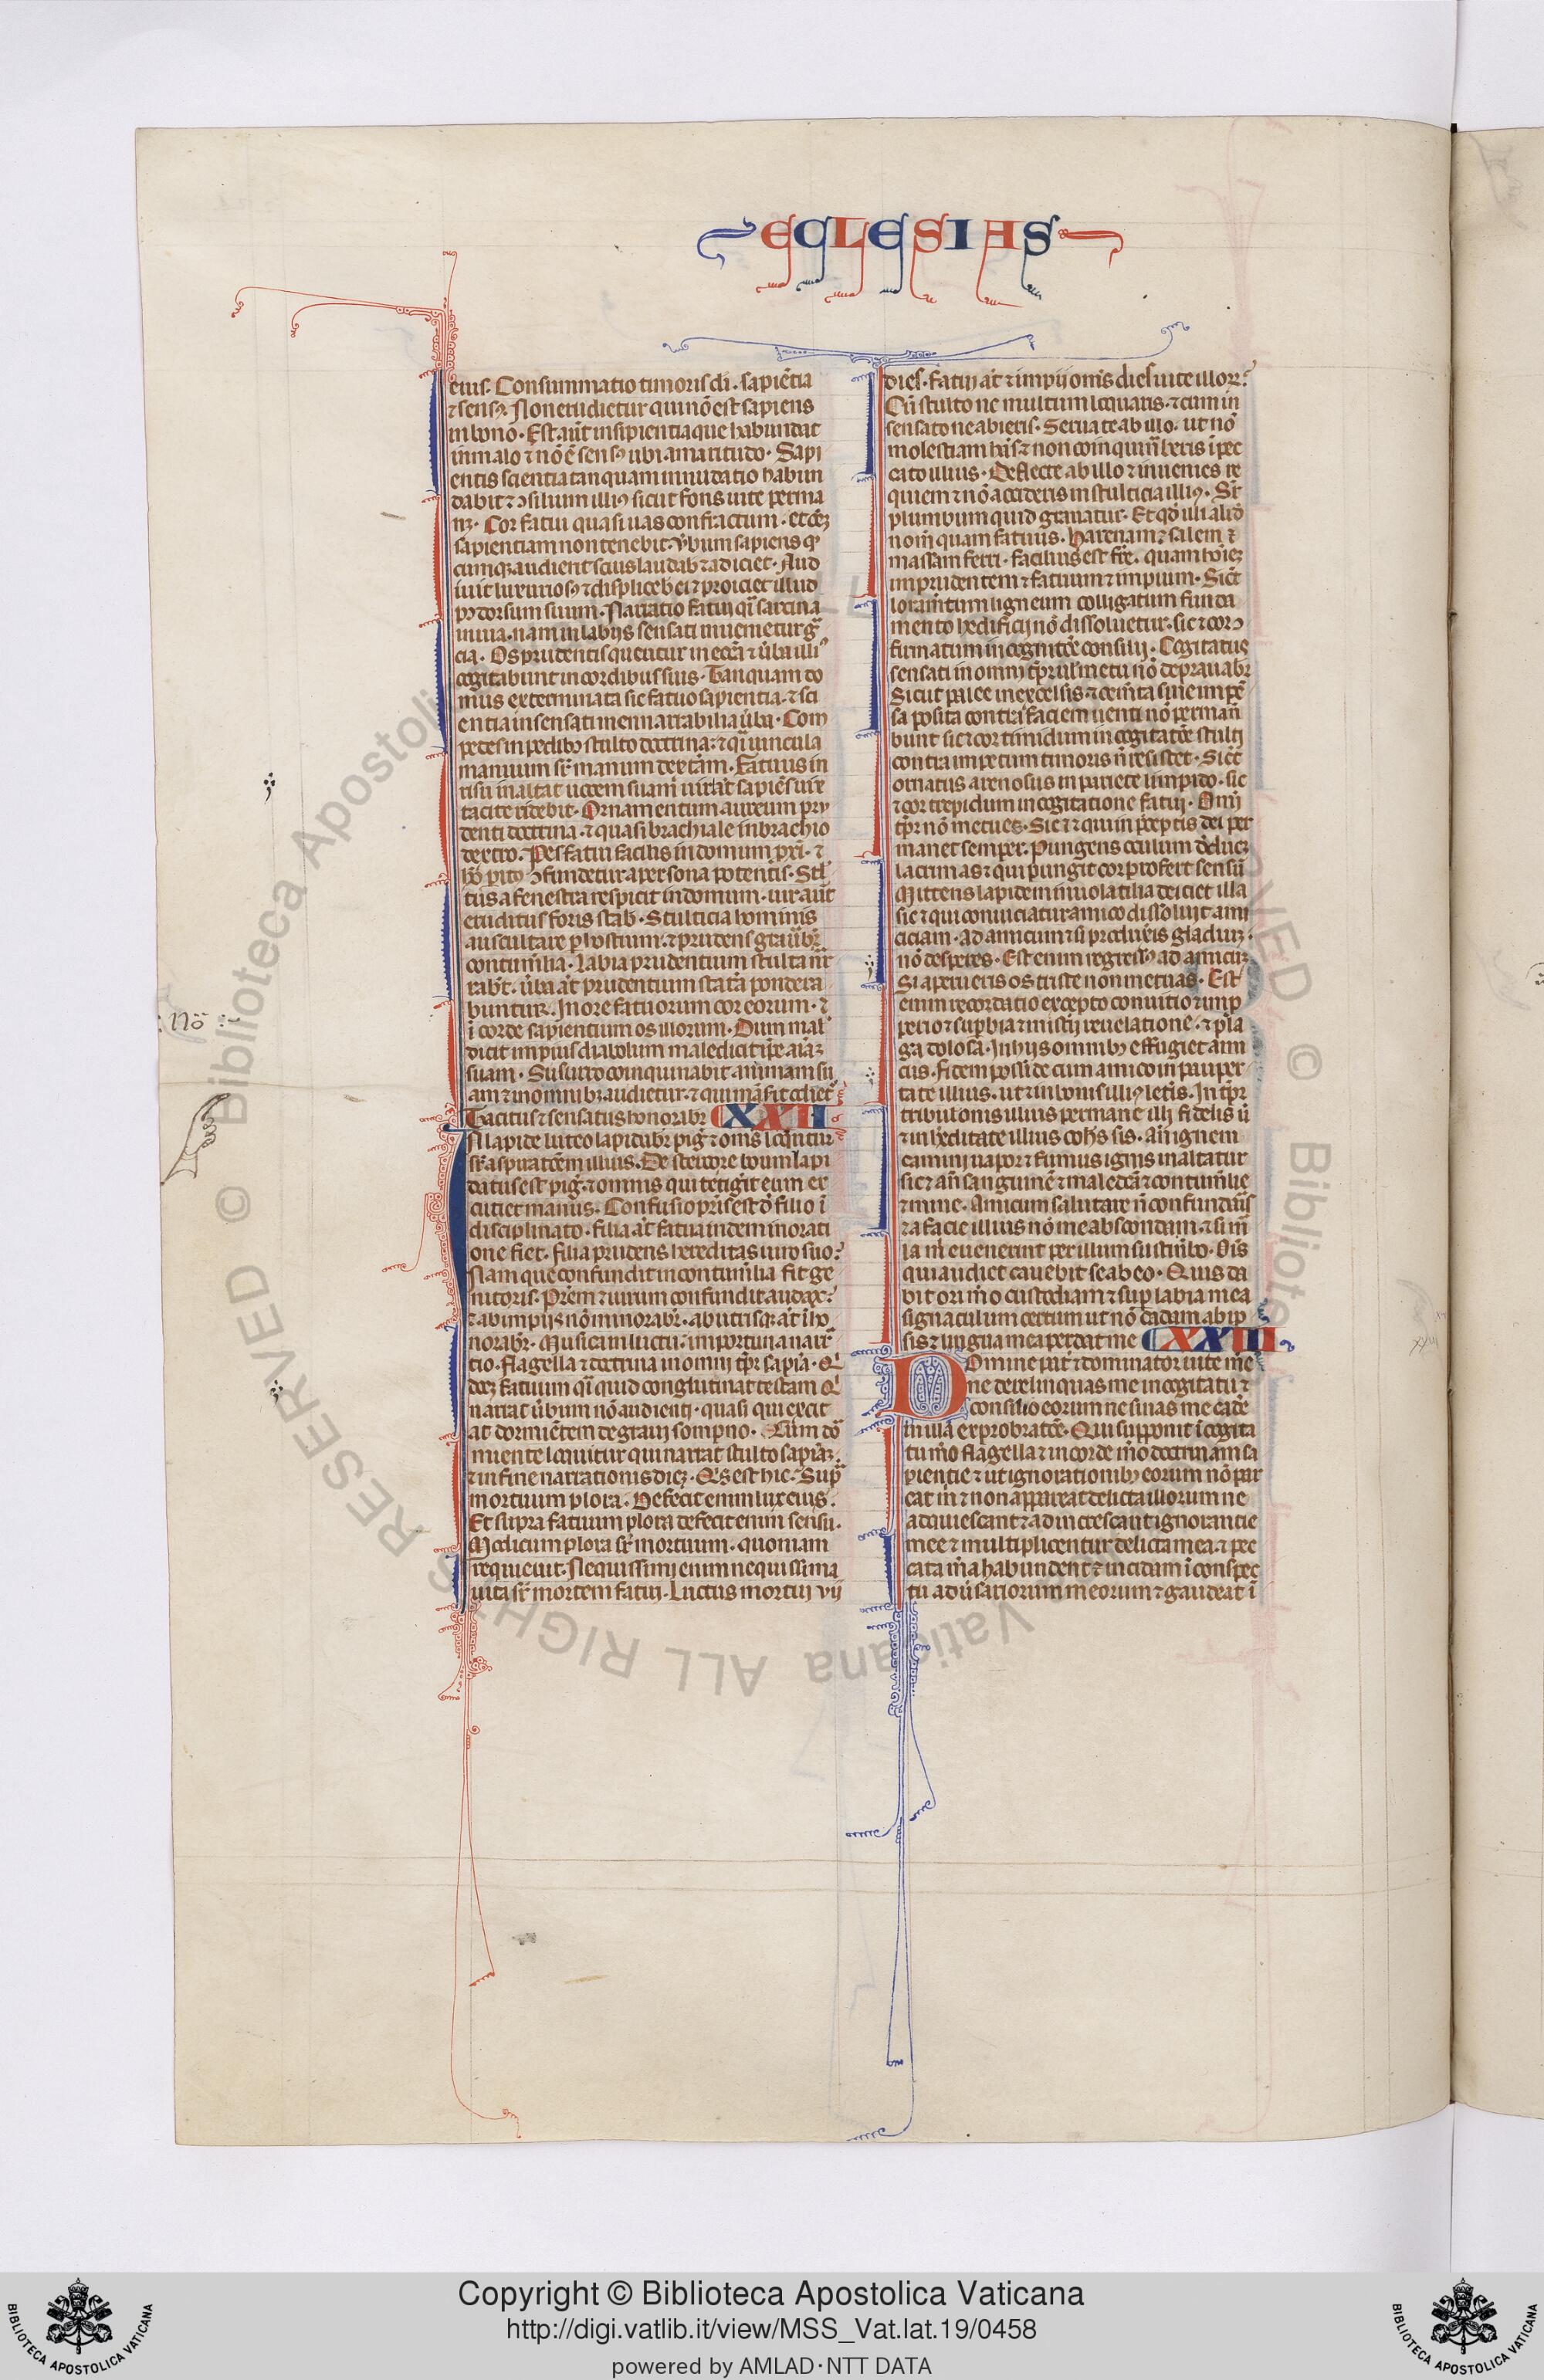 ECLESIAS
eius. Consummatio timoris di. sapiẽtia
⁊ sensꝰ. Non erudietur qui nõ est sapiens
in bono. Est aũt insipientia que habundat
in malo ⁊ nõ ẽ sensꝰ ubi amaritudo. Sapi
entis scientia tanquam inundatio habun
dabit ⁊ ↄsilium illiꝰ sicut fons uite perma
nꝫ. Cor fatui quasi uas confractum. et oẽꝫ
sapientiam non tenebit. Ubum sapiens qͦ
cumqꝫ audient scius laudab ⁊ adiciet. Aud
iuit luxuriosꝰ ⁊ displiceb ei ⁊ proiciet illud
pꝰ dorsum suum. Narratio fatui qͣi sarcina
in uia. nam in labijs sensati inuenietur gͣ
cia. Os prudentis queritur in eccͣa ⁊ ũba illiꝰ
cogitabunt in cordibus suis. Tanquam do
mus exterminata sic fatuo sapientia. ⁊ sci
entia insensati inenarrabilia ũba. Com
pedes in pedibꝰ stulto doctrina: ⁊ qͣi uincula
manuum sr̃ manum dextͣam. Fatuus in
risu inaltat uocem suam uir at̃ sapiẽs uix
tacite ridebit. Ornamentum aureum pru
denti doctrina. ⁊ quasi brachiale in brachio
dextro. Pes fatui facilis in domum pxĩ. ⁊
hõ pito ↄfundetur a persona potentis. Stl̃
tus a fenestra respicit in domum. uir aũt
eruditus foris stab. Stulticia hominis
auscultare p hostium. ⁊ prudens grau̾br̃
contum̃lia. Labia prudentium stulta nr̃
rabt̃. ũba at̃ prudentium statͣa pondera
buntur. In ore fatuorum cor eorum. ⁊
ĩ corde sapientium os illorum. Dum mal̾
dicit impius diabolum maledicit ip̃e aĩaꝫ
suam. Susurro coinquinabit animam su
am ⁊ in omnibꝫ audietur. ⁊ qui
Tacitus ⁊ sensatus honorabr̃ CXXII
IN lapide luteo lapidabr̃ pig̾ ⁊ om̃s loq̃ntur
sr̃ aspnatõem illius. De stercore boum lapi
datus est pig̾. ⁊ omnis qui tetigit eum ex
cutiet manus. Confusio pr̃is est d̾ filio ĩ
disciplinato. filia at̃ fatua in deminorati
one fiet. filia prudens hereditas uiro suo.
Nam que confundit in contum̃lia fit ge
nitoris. Pr̃em ⁊ uirum confundit audax.
⁊ ab impijs nõ minorabr̃. ab utrisqꝫ at̃ iho
norabr̃. Musica in luctu: importuna narͣ
tio. flagella ⁊ doctrina in omni tp̃r sapia. Q̾
docꝫ fatuum qͣi quid conglutinat testam Q̾
narrat ũbum nõ audienti. quasi qui excit
at dormiẽtem de graui sompno. Cum do
miente loquitur qui narrat stulto sapĩaꝫ.
⁊ in fine narrationis dicꝫ. Qͥs est hic. Supͣ
mortuum plora. Defecit enim lux eius.
Et supra fatuum plora defecit enim sensu.
Modicum plora sr̃ mortuum. quoniam
requieuit. Nequissimi enim nequissima
uita sr̃ mortem fatui. Luctus mortui vij
dies. fatui at̃ ⁊ impij om̃s dies uite illor̃.
Cũ stulto ne multum loquaris. ⁊ cum in
sensato ne abieris. Serua te ab illo. ut nõ
molestiam hẽs ⁊ non coinquinaberis ĩ pec
cato illius. Deflecte ab illo ⁊ inuenies re
quiem ⁊ nõ accideris in stulticia illiꝰ. Sr̃
plumbum quid grauatur. Et qd̾ illi aliud̾
nom̃ quam fatuus. Harenam ⁊ salem ⁊
massam ferri. facilius est fr̃e. quam hoĩeꝫ
imprudentem ⁊ fatuum ⁊ impium. Sict̃
loram̃tum ligneum colligatum funda
mento hedificij nõ dissoluetur. sic ⁊ cor ↄ
firmatum in cogitatõe consilij. Cogitatus
sensati in omni tp̃r ul̾ metu nõ deprauabr̃
Sicut palee in excelsis. ⁊ cem̃ta sine impẽ
sa posita contra faciem uenti nõ permane
bunt sic ⁊ cor timidum in cogitatõe stulti
contra impetum timoris ñ resistet. Sict̃
ornatus arenosus in pariete limpido. sic
⁊ cor trepidum in cogitatione fatui. Omi
tp̃r nõ metues. Sic ⁊ ⁊ qui in p̃ceptis dei per
manet semper. Pungens oculum deducꝫ
lacrimas ⁊ qui pungit cor profert sensũ
Mittens lapidem in uolatilia deiciet illa
sic ⁊ qui conuiciatur amico dissoluit ami
ciciam. ad amicum ⁊ si produxeris gladiuꝫ.
nõ desperes. Est enim regressꝰ ad amicuꝫ
Si aperueris os triste non metuas. Est
enim recordatio excepto conuitio ⁊ imp
perio ⁊ supbia ⁊ mistij reuelatione. ⁊ pla
ga dolosa. In hijs omnibꝰ effugiet ami
cus. fidem possi de cum amico in pauper
tate illius. ut ⁊ in bonis illiꝰ leteris. In tp̃r
tribulonis illius permane illi fidelis ũ
⁊ in heditate illius coh̾s sis. An̾ ignem
camini uapor ⁊ fumus ignis inaltatur
sic ⁊ an̾ sanguinẽ ⁊ maledc̃a ⁊ contum̃lie
⁊ mine. Amicum salutare ñ confundar̃
⁊ a facie illius nõ me abscondam. ⁊ si m̃
la m̃ euenerint per illum sustin̾bo. Õis
qui audiet cauebit se ab eo. Quis da
bit ori mõ custodiam ⁊ sup labia mea
signaculum certum ut nõ cadam ab ip
sis ⁊ lingua mea perdat me CXXIII
Domine pat̃ ⁊ dominator uite mẽ
ne derelinquas me in cogitatu ⁊
consilio eorum ne sinas me cade̾
in illa exprobratõe. Qui supponit ĩ cogita
tu mõ flagella ⁊ in corde mõ doctrinam sa
pientie ⁊ ut ignorationibꝰ eorum nõ par
cat m̃ ⁊ non appareat delicta illorum ne
adquiescant ⁊ adincrescant ignorantie
mee ⁊ multiplicentur delicta mea. ⁊ pec
cata m̃a habundent ⁊ incidam ĩ conspec
tu adũsariorum meorum ⁊ gaudeat ĩ
nõ
Copyright © Biblioteca Apostolica Vaticana
http://digi.vatlib.it/view/MSS_Vat.lat.19/0458
powered by AMLAD·NTT DATA
BIBLIOTECA APOSTOLICA VATICANA
BIBLIOTECA APOSTOLICA VATICANA
© Biblioteca Apostolica Vaticana ALL RIGHTS RESERVED